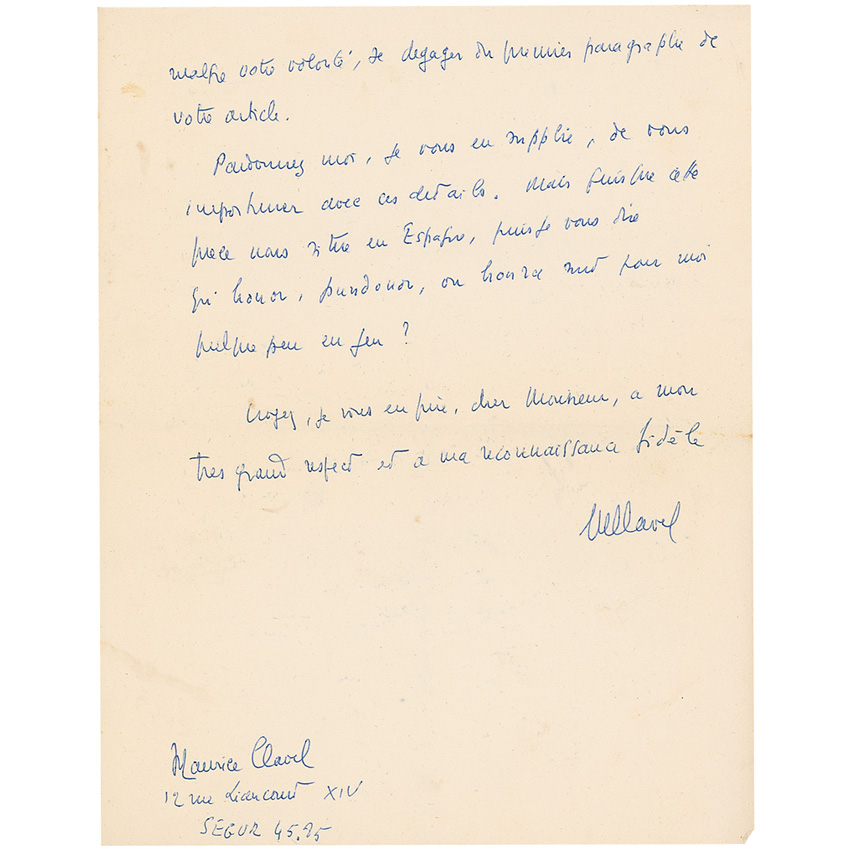 malgré votre volonté, se dégager du premier paragraphe de
votre article.
Pardonnez moi, je vous en supplie, de vous
importuner avec ces détails. Mais puisque cette
pièce nous situe en Espagne, puis-je vous dire
qu' honor, pundonor, ou honra sont pour moi
quelque peu en jeu ?
Croyez, je vous en prie, cher Monsieur, a mon
tres grand respect et a ma reconnaissance fidèle
MClavel
Maurice Clavel
12 rue Liancourt XIV
SEGUR 45.95